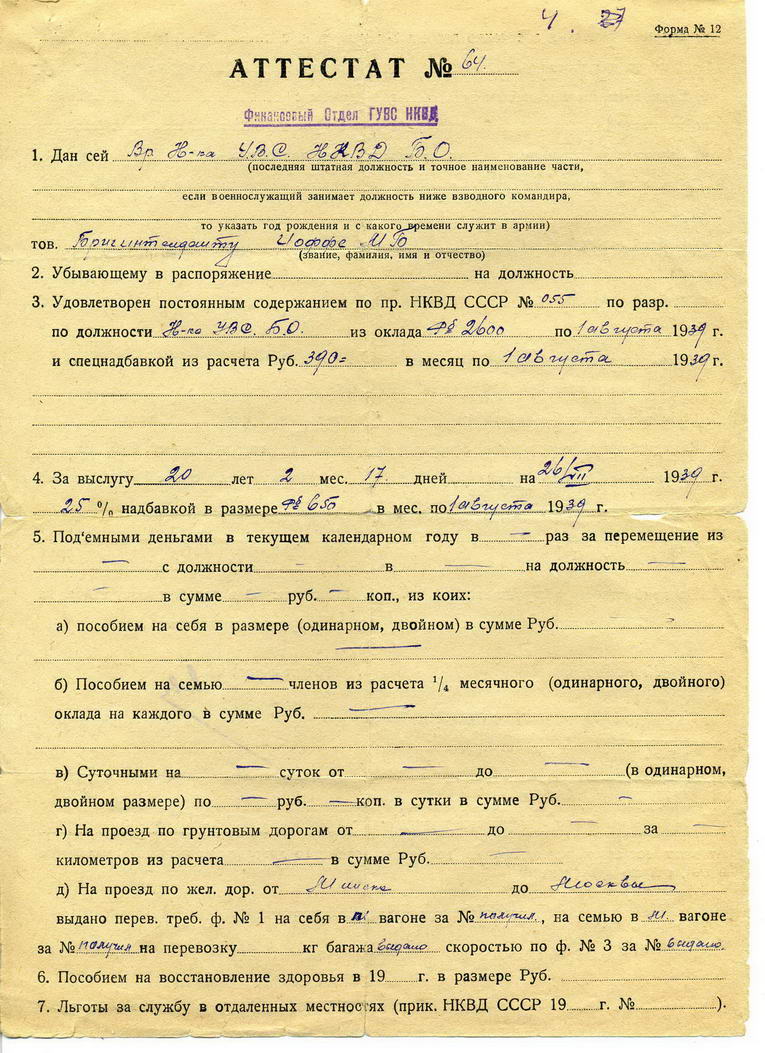 4. 27
Форма № 12
АТТЕСТАТ № 64.
Финансовый Отдел ГУВС НКВД
1. Дан сей Вр. Н-ка УВС. НКВД Б.О.
(последняя штатная должность и точное наименование части,
если военнослужащий занимает должность ниже взводного командира,
то указать год рождения и с какого времени служит в армии)
тов. Бригинтенданту Иоффе М Б
(звание, фамилия, имя и отчество)
2. Убывающему в распоряжение на должность
3. Удовлетворен постоянным содержанием по пр. НКВД СССР № 055 по разр.
по должности Н-ка УВС. Б.О. из оклада Рб 2600 по 1 августа 1939 г.
и спецнадбавкой из расчета Руб. 390= в месяц по 1 августа 1939 г.
4. За выслугу 20 лет 2 мес. 17 дней на 26/VII 1939 г.
25 % надбавкой в размере Рб 650 в мес. по 1 августа 1939 г.
5. Под'емными деньгами в текущем календарном году в — раз за перемещение из
— с должности — в — на должность —
— в сумме — руб. — коп., из коих:
а) пособием на себя в размере (одинарном, двойном) в сумме Руб. —
б) Пособием на семью — членов из расчета 1/4 месячного (одинарного, двойного)
оклада на каждого в сумме Руб. —
в) Суточными на — суток от — до — (в одинарном,
двойном размере) по — руб. — коп. в сутки в сумме Руб. —
г) На проезд по грунтовым дорогам от — до — за —
километров из расчета — в сумме Руб. —
д) На проезд по жел. дор. от Минска до Москвы
выдано перев. треб. ф. № 1 на себя в вагоне за № получил, на семью в вагоне
за № получил на перевозку кг багажа выдано скоростью по ф. № 3 за № выдано.
6. Пособием на восстановление здоровья в 19 г. в размере Руб.
7. Льготы за службу в отдаленных местностях (прик. НКВД СССР 19 г. № ).